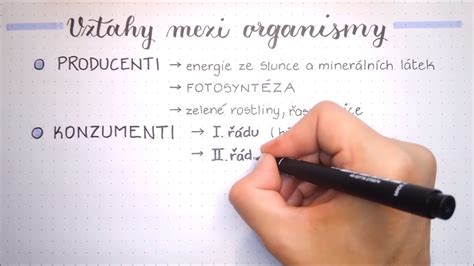 Vztahy mezi organismy
PRODUCENTI → energie ze slunce a minerálních látek
→ FOTOSYNTÉZA
→ zelené rostliny,
KONZUMENTI → I. řádu
→ II. řád